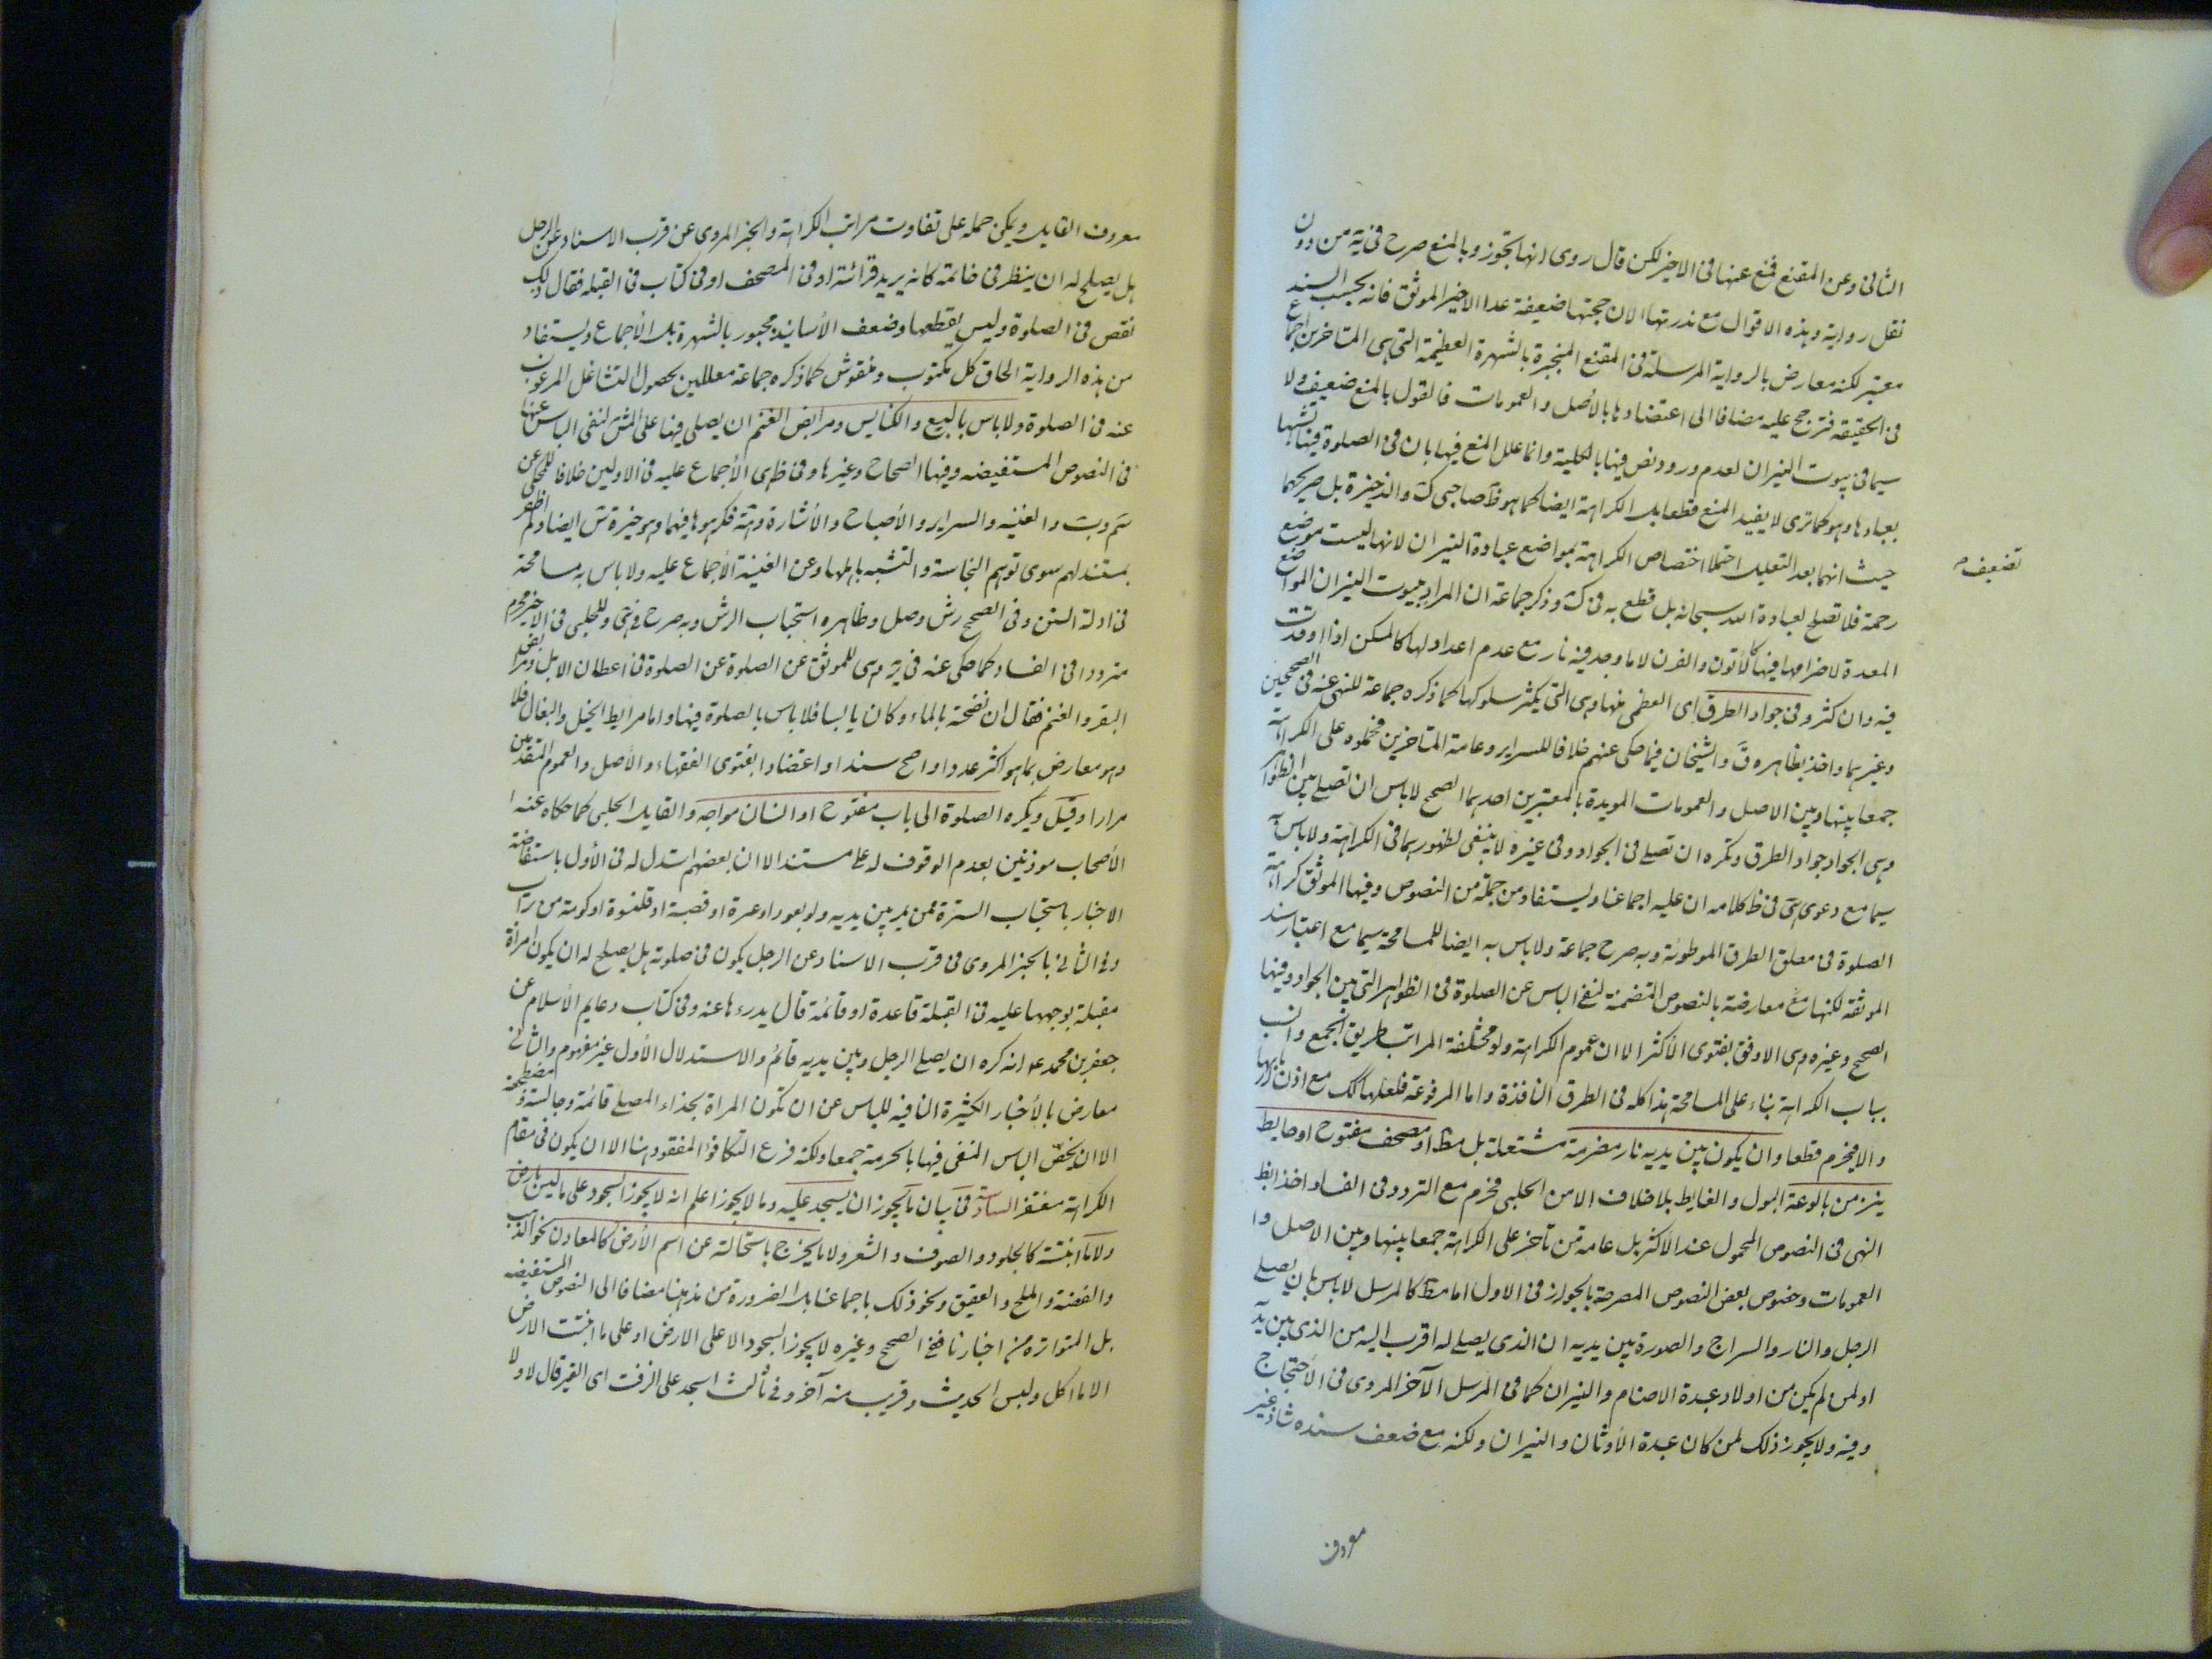 الثانى وعن المقنع فمنع عنها فى الاخير لكن قال روى انها تجوز وبالمنع صرح فى ية من دون
نقل رواية وهذه الاقوال مع ندرتها الان حجتها ضعيفة عدا الاخير الموثق فانه بحسب السند
معتبر لكنه معارض بالرواية المرسلة فى المقنع المنجبرة بالشهرة العظيمة التى هى المتاخرين اجماع
فى الحقيقة فترجح عليه مضافا الى اعتضادها بالأصل والعمومات فالقول بالمنع ضعيف ولا
سيما فى بيوت النيران لعدم ورود نص فيها بالكلية وانما علل المنع فيها بان فى الصلوة فيها تشبها
بعبادها وهو كما ترى لا يفيد المنع قطعا بل الكراهة ايضا كما هو ظ صاحبى ك والذخيرة بل صريحهما
حيث انهما بعد التعليل احتملا اختصاص الكراهة بمواضع عبادة النيران لانها ليست موضع
رحمة فلا تصلح لعبادة الله سبحانه بل قطع به فى ك وذكر جماعة ان المراد ببيوت النيران المواضع
المعدة لاضرامها فيها كالأتون والفرن لا ما وجد فيه نار مع عدم اعداد لها كالمسكن اذا اوقدت
فيه وان كثر وفى جواد الطرق اى العظمى منها وهى التى يكثر سلوكها كما ذكره جماعة للنهى عنه فى الصحيحين
وغيرهما واخذ بظاهره ق والشيخان فيما حكى عنهم خلافا للسرائر وعامة المتاخرين فحملوه على الكراهة
جمعا بينها وبين الاصل والعمومات المويدة بالمعتبرين احدهما الصحيح لا باس ان تصلى بين الظواهر
وهى الجواد جواد الطرق وتكره ان تصلى فى الجواد وفى غيره لا ينبغى لظهورهما فى الكراهة ولا باس به
سيما مع دعوى هى فى ظ كلامه ان عليه اجماعنا ويستفاد من جملة من النصوص وفيها الموثق كراهة
الصلوة فى مطلق الطرق الموطوئة وبه صرح جماعة ولا باس به ايضا للمسامحة سيما مع اعتبار سند
الموثقة لكنها مع معارضة بالنصوص المتضمنة لنفى الباس عن الصلوة فى الظواهر التى بين الجواد وفيها
الصحيح وغيره وهى الاوفق بفتوى الأكثر الا ان عموم الكراهة ولو مختلفة المراتب طريق الجمع وانسب
بباب الكراهة بناء على المسامحة هذا كله فى الطرق النافذة واما المرفوعة فلعلها كك مع اذن اربابها
والا فيحرم قطعا وان يكون بين يديه نار مضرمة مشتعلة بل مط او مصحف مفتوح او حايط
ينز من بالوعة البول والغايط بلا خلاف الا من الحلبى فحرم مع التردد فى الفساد اخذا بظ
النهى فى النصوص المحمول عند الاكثر بل عامة من تأخر على الكراهة جمعا بينها وبين الاصل وا
العمومات وخصوص بعض النصوص المصرحة بالجواز فى الاول اما مط كالمرسل لا باس بان يصلى
الرجل والنار والسراج والصورة بين يديه ان الذى يصلى له اقرب اليه من الذى بين يديه
او لمن لم يكن من اولاد عبدة الاصنام والنيران كما فى المرسل الآخر المروى فى الأحتجاج
وفيه ولا يجوز ذلك لمن كان عبدة الأوثان والنيران ولكنه مع ضعف سنده شاذ غير
معروف
تضعيف م
معروف القايل ويمكن حمله على تفاوت مراتب الكراهة والخبر المروى عن قرب الاسناد عن الرجل
هل يصلح له ان ينظر فى خاتمه كانه يريد قرائته او فى المصحف او فى كتاب فى القبلة فقال ذلك
نقص فى الصلوة وليس يقطعها وضعف الأسانيد مجبور بالشهرة بل الأجماع ويستفاد
من هذه الرواية الحاق كل مكتوب ومنقوش كما ذكره جماعة معللين بحصول التشاغل المرغوب
عنه فى الصلوة ولا باس بالبيع والكنايس ومرابض الغنم ان يصلى فيها على المش لنفى الباس عنها
فى النصوص المستفيضه وفيها الصحاح وغيرها وفى ظ هى الأجماع عليه فى الاولين خلافا للمحكى عن
سم وب والغنيه والسراير والأصباح والأشارة فكرهوها فيهما وهو خيرة س ايضا ولم اظفر
بمستند لهم سوى توهم النجاسة والتشبه باهلها وعن الغنية الأجماع عليه ولا باس به مسامحة
فى ادلة السنن وفى الصحيح رش وصل وظاهره استحباب الرش وبه صرح فى هى وللحلبى فى الاخير فحرم
مترددا فى الفساد كما حكى عنه فى ية وهى للموثق عن الصلوة عن الصلوة فى اعطان الابل ومرابض
البقر والغنم فقال ان نضحته بالماء وكان يابسا فلا باس بالصلوة فيها واما مرابط الخيل والبغال فلا
وهو معارض بما هو اكثر عددا واصح سندا واعتضادا بفتوى الفقهاء والأصل والعموم المتقدمين
مرارا وقيل ويكره الصلوة الى باب مفتوح او انسان مواجه والقايل الحلبى كما حكاه عنه ا
الأصحاب موذنين بعدم الوقوف له على مستند الا ان بعضهم استدل له فى الأول باستفاضة
الاخبار باستحباب السترة ممن يمر بين يديه ولو بعود او عنزة او قصبة او قلنسوة او كومة من تراب
وفى الثانى بالخبر المروى فى قرب الاسناد عن الرجل يكون فى صلوته هل يصلح له ان يكون امراة
مقبلة بوجهها عليه فى القبلة قاعدة او قائمة قال يدرءها عنه وفى كتاب دعايم الأسلام عن
جعفر بن محمد ع انه كره ان يصلى الرجل وبين يديه قائم والاستدلال الأول غير مفهوم والثانى
معارض بالأخبار الكثيرة النافية للباس عن ان تكون المراة بحذاء المصلى قائمة وجالسة ومضطجعة
الا ان يخص الباس المنفى فيها بالحرمة جمعا ولكنه فرع التكافؤ المفقود هنا الا ان يكون فى مقام
الكراهة مغتفر السادسة فى بيان ما يجوز ان يسجد عليه وما لا يجوز اعلم انه لا يجوز السجود على ما ليس بارض
ولا ما انبتته كالجلود والصوف والشعر ولا ما يخرج باستحالته عن اسم الأرض كالمعادن نحو الذهب
والفضة والملح والعقيق ونحو ذلك باجماعنا بل الضرورة من مذهبنا مضافا الى النصوص المستفيضه
بل المتواترة من اخبارنا ففى الصحيح وغيره لا يجوز السجود الا على الارض او على ما انبتت الارض
الا ما اكل ولبس الحديث وقريب منه آخر وفى ثالث اسجد على الزفت اى القير قال لا ولا